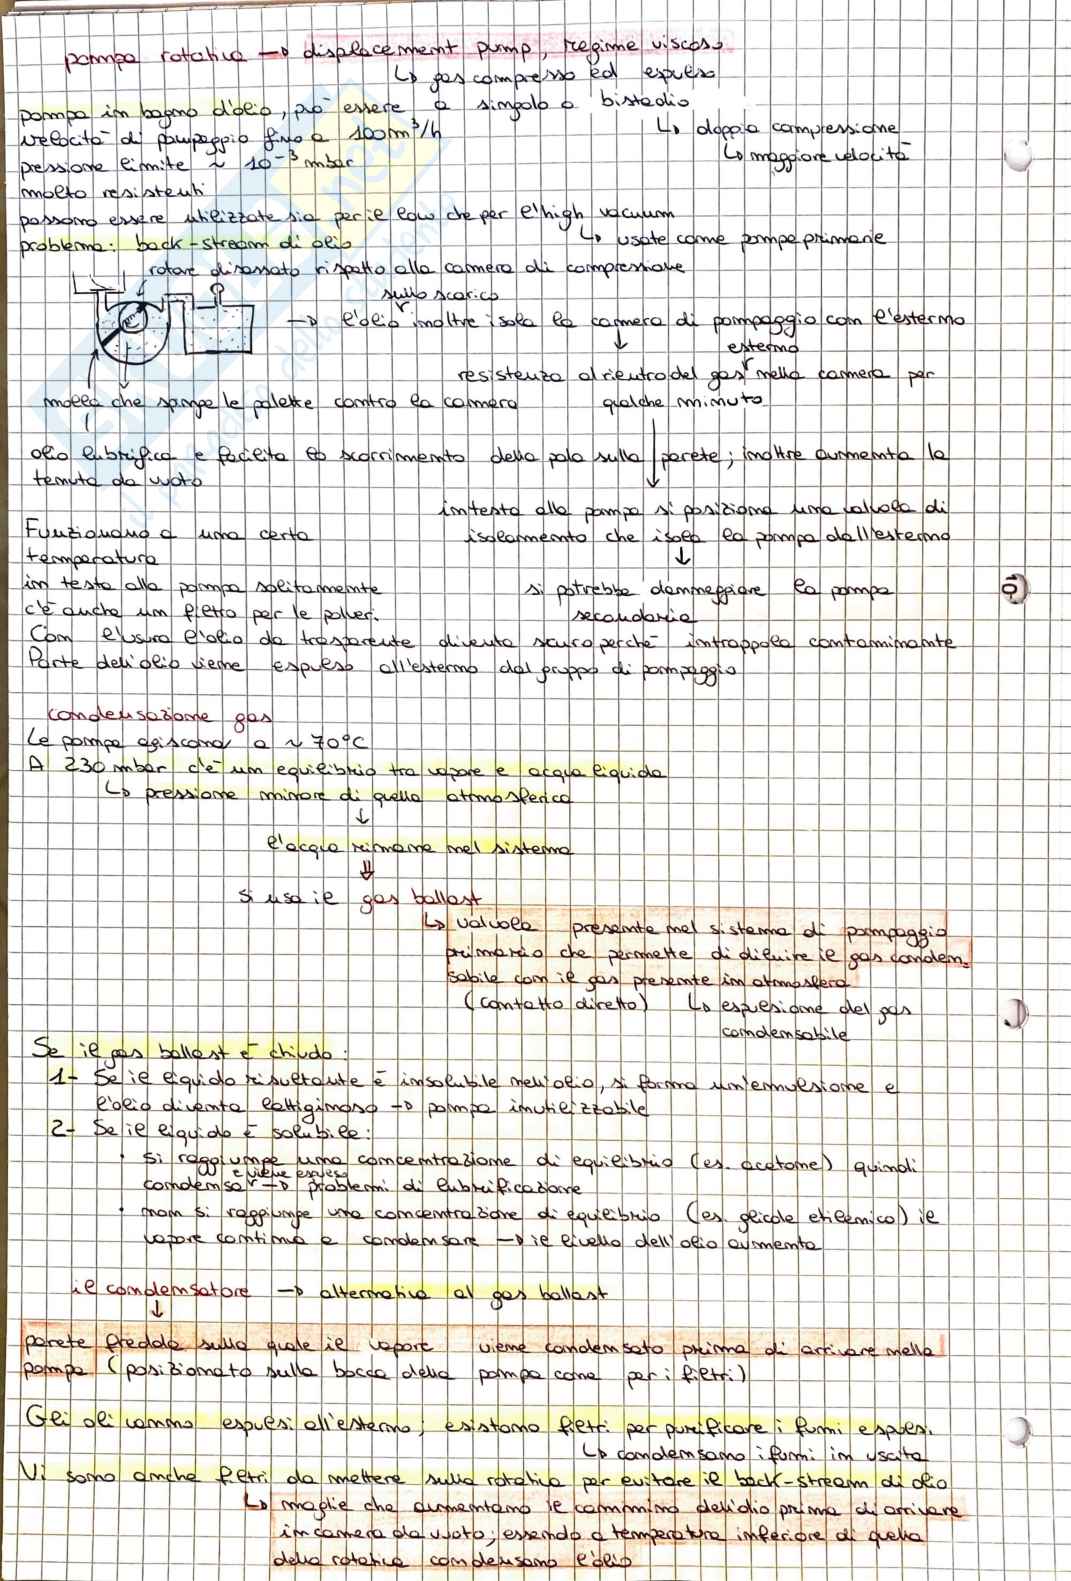 pompa rotativa → displacement pump, regime viscoso
↳ gas compresso ed espulso
pompa in bagno d'olio, può essere a singolo o bistadio
↳ doppia compressione
velocità di pompaggio fino a 100 m³/h
↳ maggiore velocità
pressione limite ~ 10⁻³ mbar
molto resistenti
possono essere utilizzate sia per il low che per l'high vacuum
↳ usate come pompe primarie
problema: back-stream di olio
rotore disassato rispetto alla camera di compressione
sullo scarico
→ l'olio inoltre isola la camera di pompaggio con l'esterno
↓ esterno
resistenza al rientro del gas nella camera per
qualche minuto
molla che spinge le palette contro la camera
olio lubrifica e facilita lo scorrimento della pala sulla parete; inoltre aumenta la
tenuta da vuoto
in testa alla pompa si posiziona una valvola di
isolamento che isola la pompa dall'esterno
↓
si potrebbe danneggiare la pompa
secondaria
Funzionano a una certa
temperatura
in testa alla pompa solitamente
c'è anche un filtro per le polveri.
Con l'usura l'olio da trasparente diventa scuro perchè intrappola contaminante
Parte dell'olio viene espulso all'esterno dal gruppo di pompaggio
condensazione gas
Le pompe agiscono a ~ 70°C
A 230 mbar c'è un equilibrio tra vapore e acqua liquida
↳ pressione minore di quella atmosferica
↓
l'acqua rimane nel sistema
⇓
si usa il gas ballast
↳ valvola presente nel sistema di pompaggio
primario che permette di diluire il gas conden-
sabile con il gas presente in atmosfera
(contatto diretto) ↳ espulsione del gas
condensabile
Se il gas ballast è chiudo:
1- Se il liquido risultante è insolubile nell'olio, si forma un'emulsione e
l'olio diventa lattiginoso → pompa inutilizzabile
2- Se il liquido è solubile:
· si raggiunge una concentrazione di equilibrio (es. acetone) quindi
e viene espulso
condensa → problemi di lubrificazione
· non si raggiunge una concentrazione di equilibrio (es. glicole etilenico) il
vapore continua a condensare → il livello dell'olio aumenta
il condensatore → alternativa al gas ballast
↓
parete fredda sulla quale il vapore viene condensato prima di arrivare nella
pompa (posizionato sulla bocca della pompa come per i filtri)
Gli oli vanno espulsi all'esterno; esistono filtri per purificare i fumi espulsi.
↳ condensano i fumi in uscita
Vi sono anche filtri da mettere sulla rotativa per evitare il back-stream di olio
↳ maglie che aumentano il cammino dell'olio prima di arrivare
in camera da vuoto; essendo a temperatura inferiore di quella
della rotativa condensano l'olio